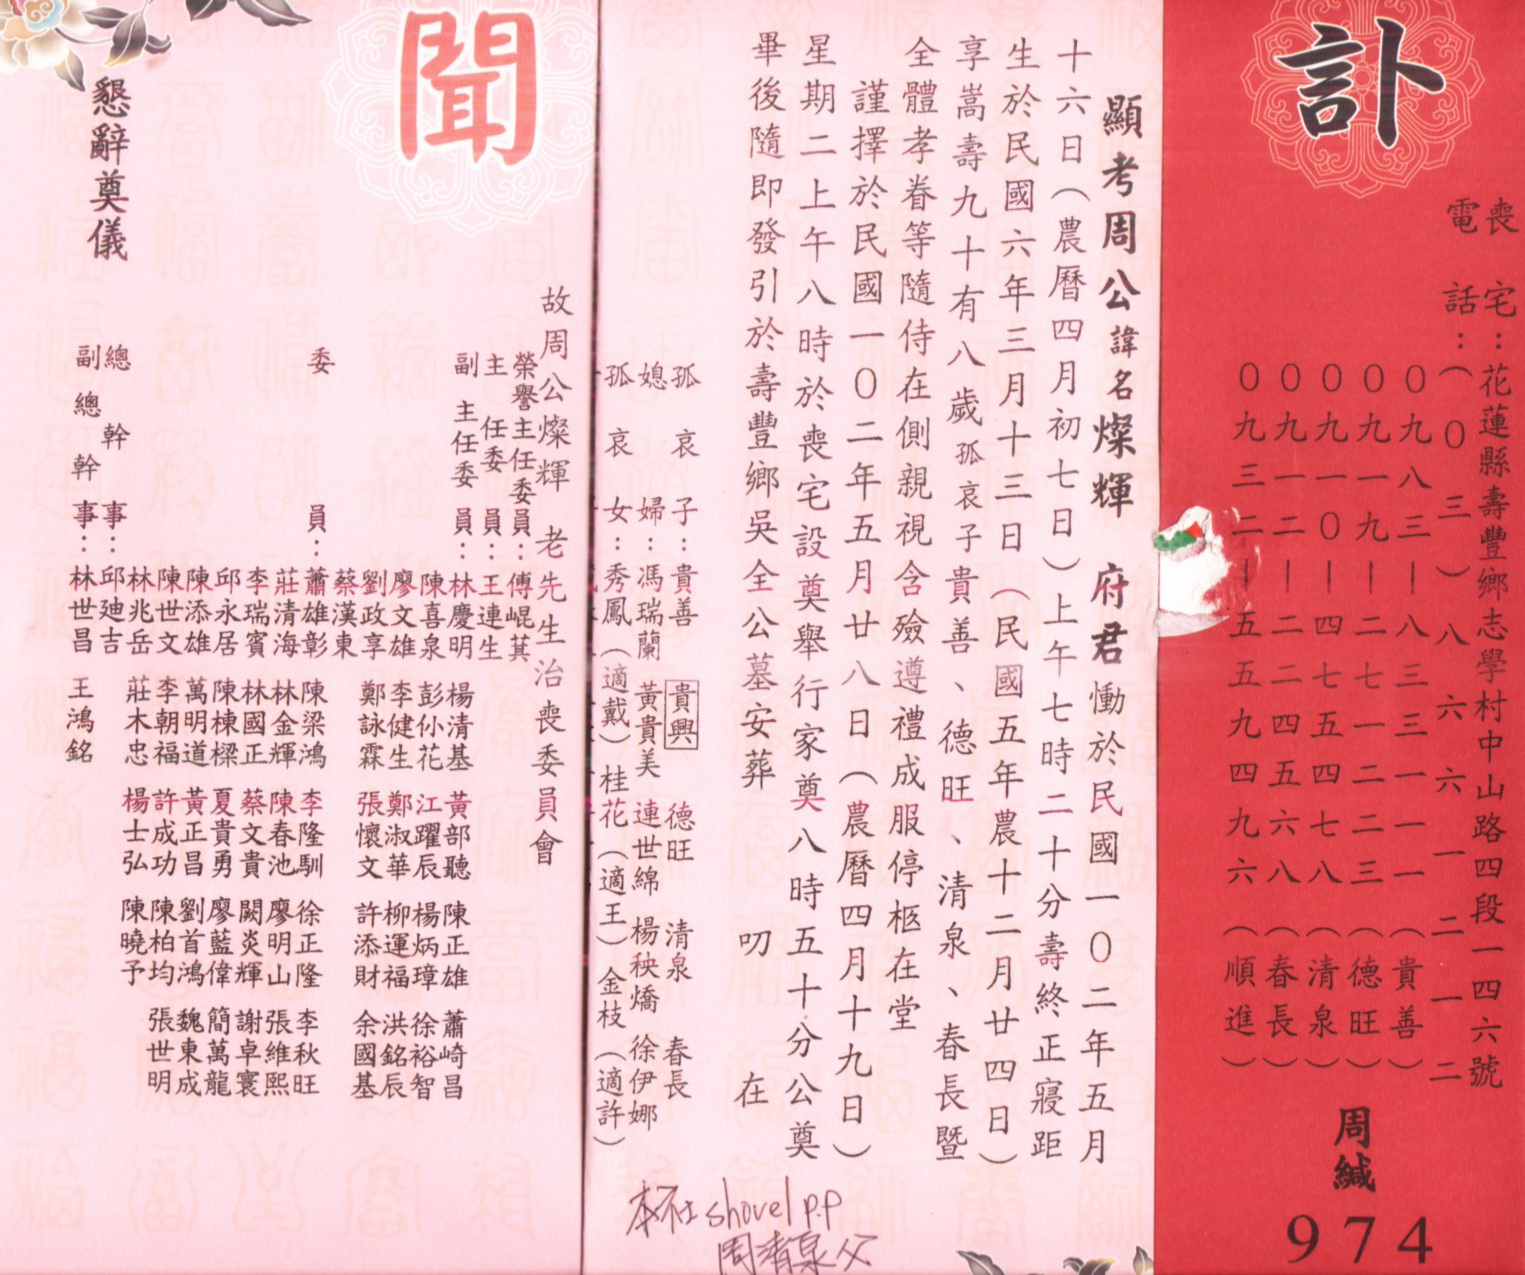 訃
喪宅：花蓮縣壽豐鄉志學村中山路四段一四六號
電話：（０三）八六六一二一二
０九八三－八三一一一（貴善）
０九一九－二七一二二三（德旺）
０九一０－四七五四七八（清泉）
０九一二－二二四五六八（春長）
０九三二－五五九四九六（順進）
周緘
974
顯考周公諱名燦輝　府君慟於民國一０二年五月
十六日（農曆四月初七日）上午七時二十分壽終正寢距
生於民國六年三月十三日（民國五年農十二月廿四日）
享嵩壽九十有八歲孤哀子貴善、德旺、清泉、春長暨
全體孝眷等隨侍在側親視含殮遵禮成服停柩在堂
謹擇於民國一０二年五月廿八日（農曆四月十九日）
星期二上午八時於喪宅設奠舉行家奠八時五十分公奠
畢後隨即發引於壽豐鄉吳全公墓安葬
叨在
孤哀子：貴善　貴興　德旺　清泉　春長
媳婦：馮瑞蘭　黃貴美　連世綿　楊秧燆　徐伊娜
孤哀女：秀鳳（適戴）桂花（適王）金枝（適許）
本社shovel p.p
周清泉父
聞
故周公燦輝　老先生治喪委員會
榮譽主任委員：傅崐萁
主任委員：王連生
副主任委員：林慶明　楊清基　黃部聽　陳正雄　蕭崎昌
陳喜泉　彭仦花　江躍辰　楊炳璋　徐裕智
廖文雄　李健生　鄭淑華　柳運福　洪銘辰
劉政享　鄭詠霖　張懷文　許添財　余國基
蔡漢東
委員：蕭雄彰　陳梁鴻　李隆馴　徐正隆　李秋旺
莊清海　林金輝　陳春池　廖明山　張維熙
李瑞賓　林國正　蔡文貴　闕炎輝　謝卓寰
邱永居　陳棟樑　夏貴勇　廖藍偉　簡萬龍
陳添雄　萬明道　黃正昌　劉首鴻　魏東成
陳世文　李朝福　許成功　陳柏均　張世明
林兆岳　莊木忠　楊士弘　陳曉予
總幹事：邱廸吉
副總幹事：林世昌　王鴻銘
懇辭奠儀